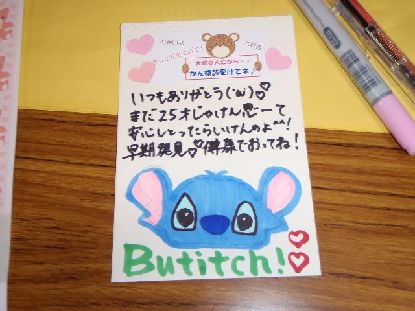 大切な人だから…
がん検診受けてネ♪
いつもありがとう(´ω`)♡
まだ25才じゃけん思ーて
安心しとったらいけんのよ^^!
早期発見♡健康でおってね!
Butitch!